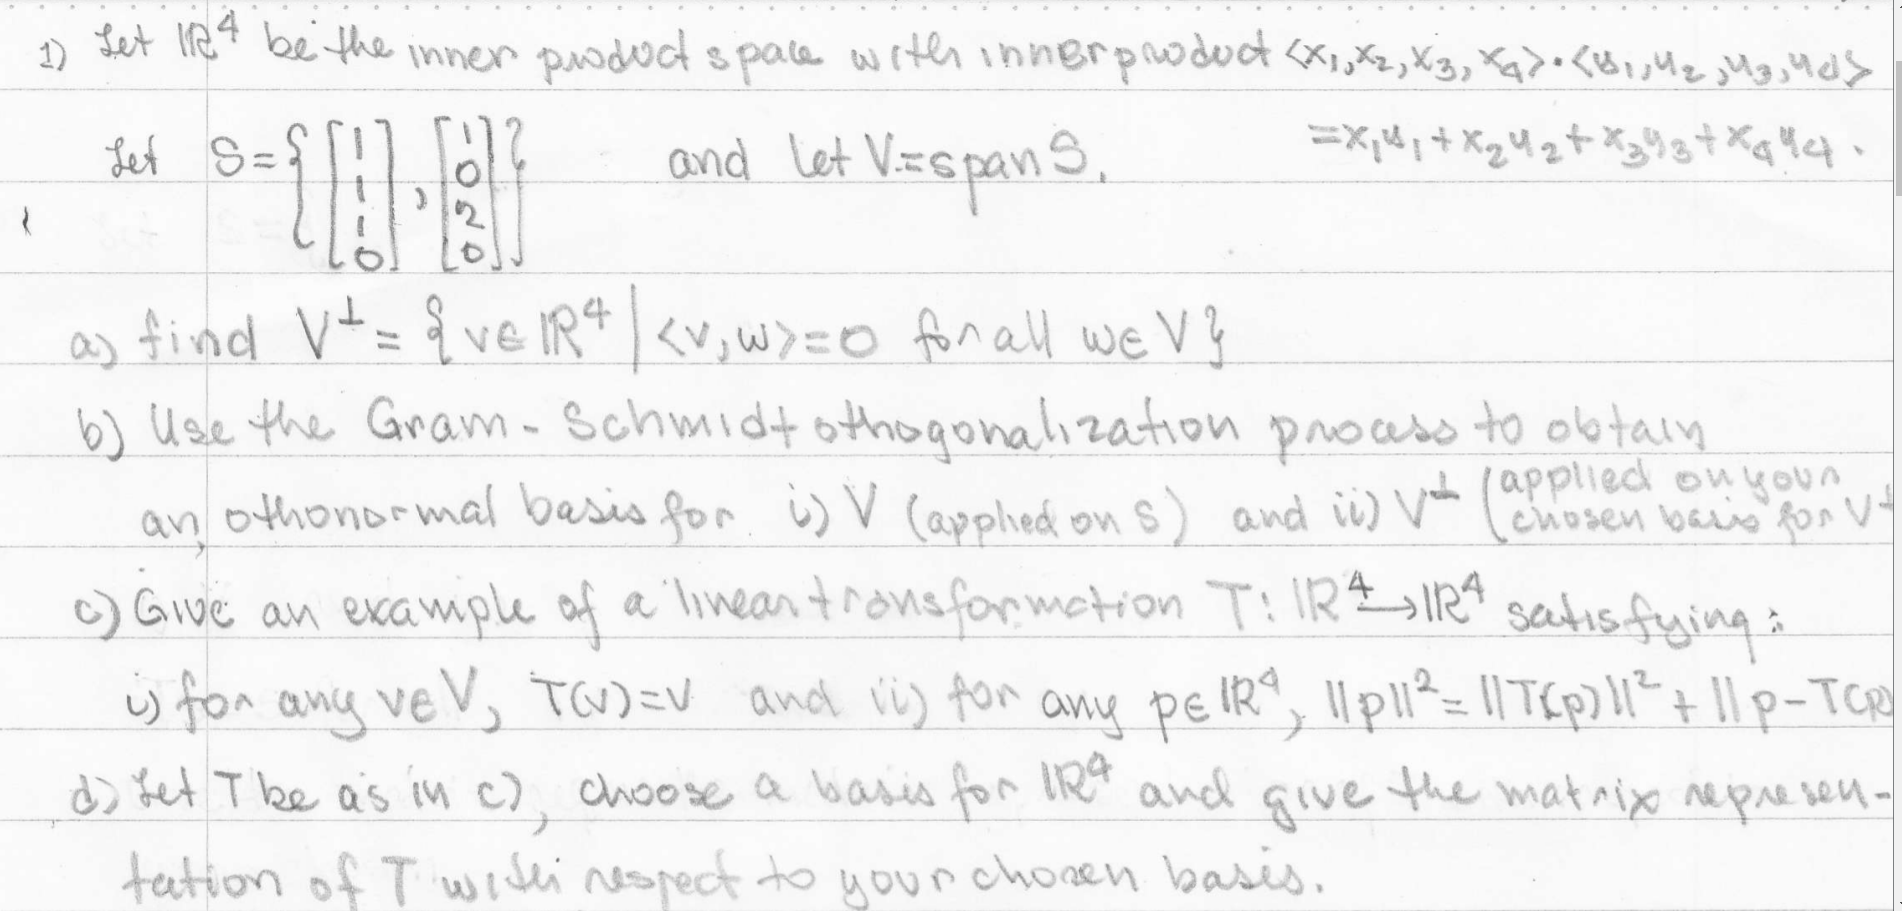 1) Let ℝ⁴ be the inner product space with inner product <x₁,x₂,x₃,x₄>·<y₁,y₂,y₃,y₄>
=x₁y₁+x₂y₂+x₃y₃+x₄y₄.
Let S={[1 1 1 0], [1 0 2 0]} and let V=span S.
a) find V^⊥ = {v∈ℝ⁴ | <v,w>=0 for all w∈V}
b) Use the Gram-Schmidt othogonalization process to obtain
an othonormal basis for i) V (applied on S) and ii) V^⊥ (applied on your chosen basis for V^⊥
c) Give an example of a linear transformation T: ℝ⁴→ℝ⁴ satisfying:
i) for any v∈V, T(v)=v and ii) for any p∈ℝ⁴, ||p||²=||T(p)||²+||p-T(p)
d) Let T be as in c), choose a basis for ℝ⁴ and give the matrix represen-
tation of T with respect to your chosen basis.